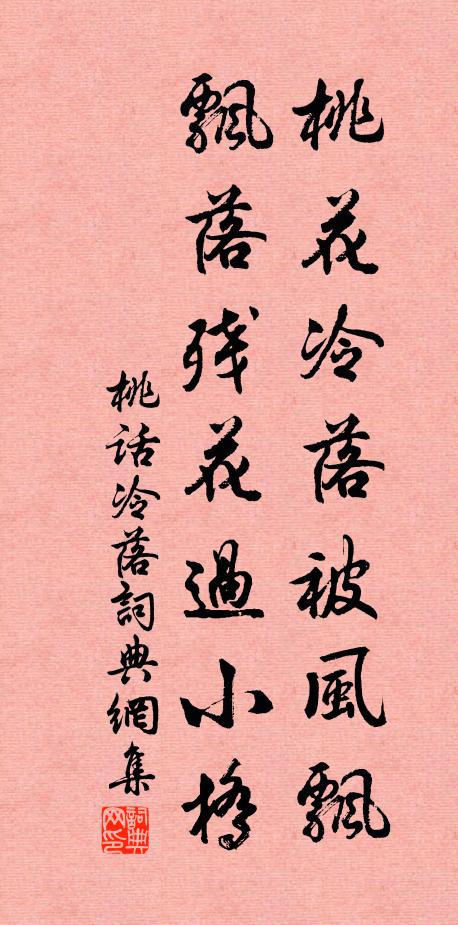 桃花冷落被風飄
飄落残花過小橋
桃话冷落詞典網集
詞典网印